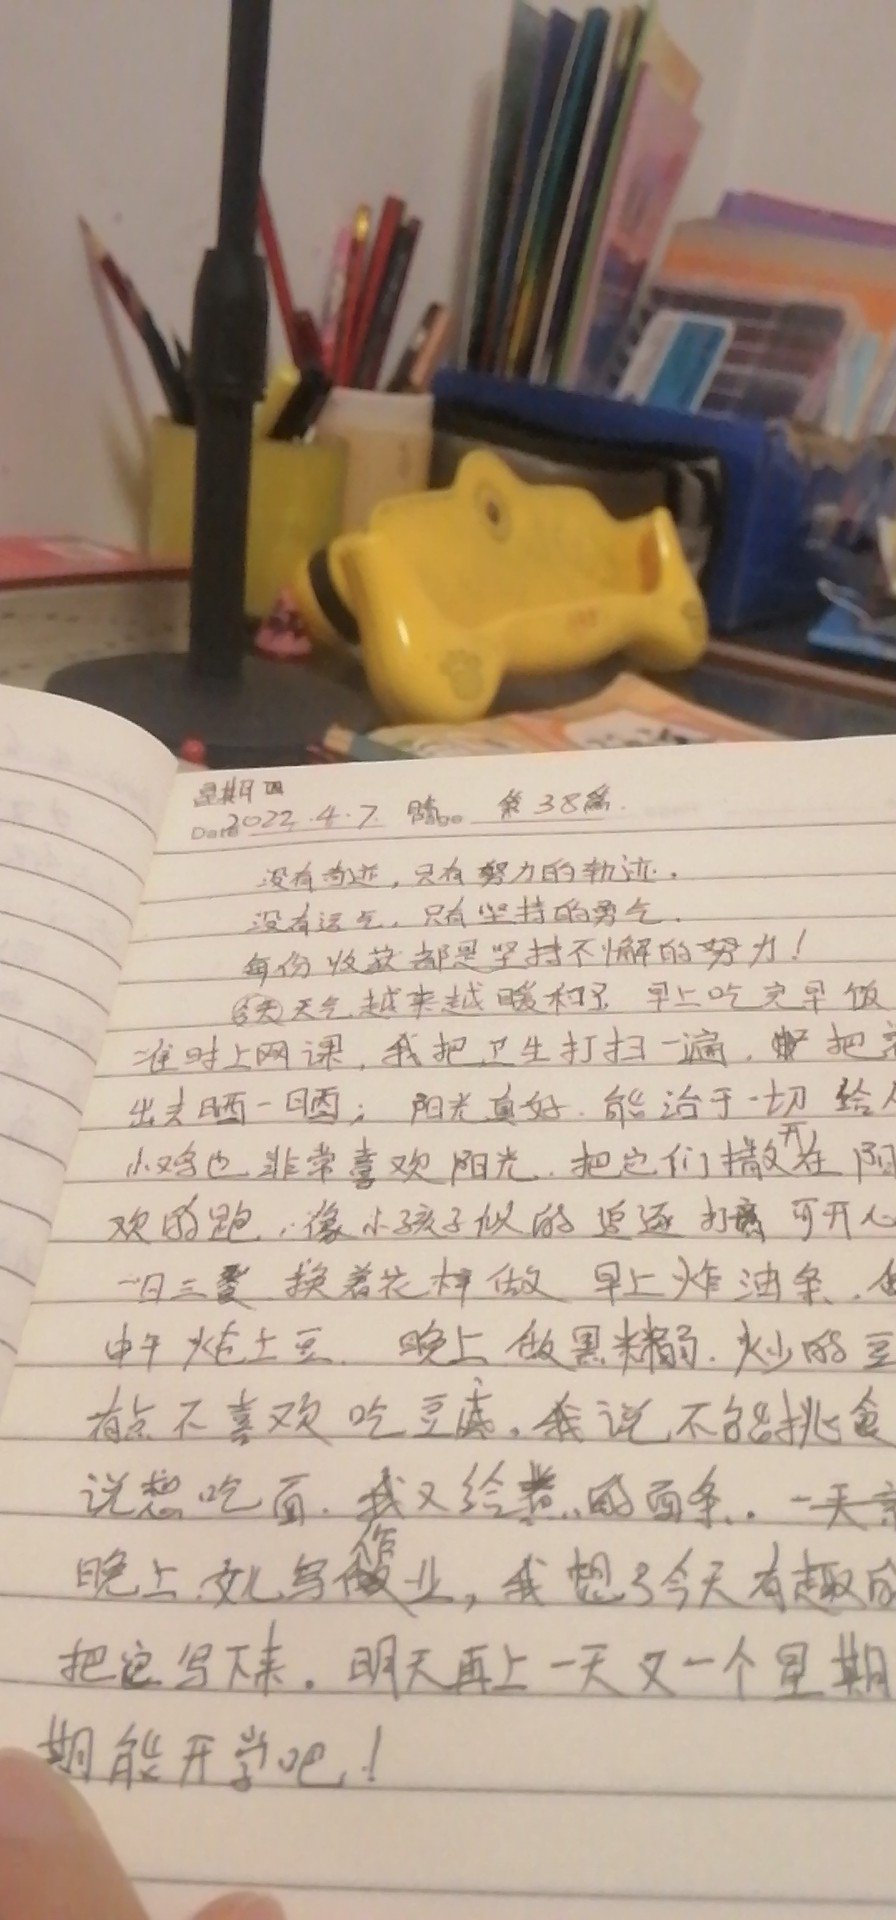 星期四
Date 2022.4.7. 晴 第38篇.
没有奇迹，只有努力的轨迹.
没有运气.只有坚持的勇气.
每份收获都是坚持不懈的努力！
天气越来越暖和了 早上吃完早饭
准时上网课，我把卫生打扫一遍. 把
出去晒一晒；阳光真好.能治于一切 给
小鸡也非常喜欢阳光.把它们撒开在阳
欢的跑.像小孩子似的追逐打 可开心
一日三餐 换着花样做 早上炸油条.
中午炖土豆. 晚上做黑 .炒的豆
有点不喜欢吃豆腐.我说不能挑食
说想吃面.我又给煮的面条.一天
晚上女儿写作业，我想了今天有趣的
把它写下来.明天再上一天又一个星期
期能开学吧！